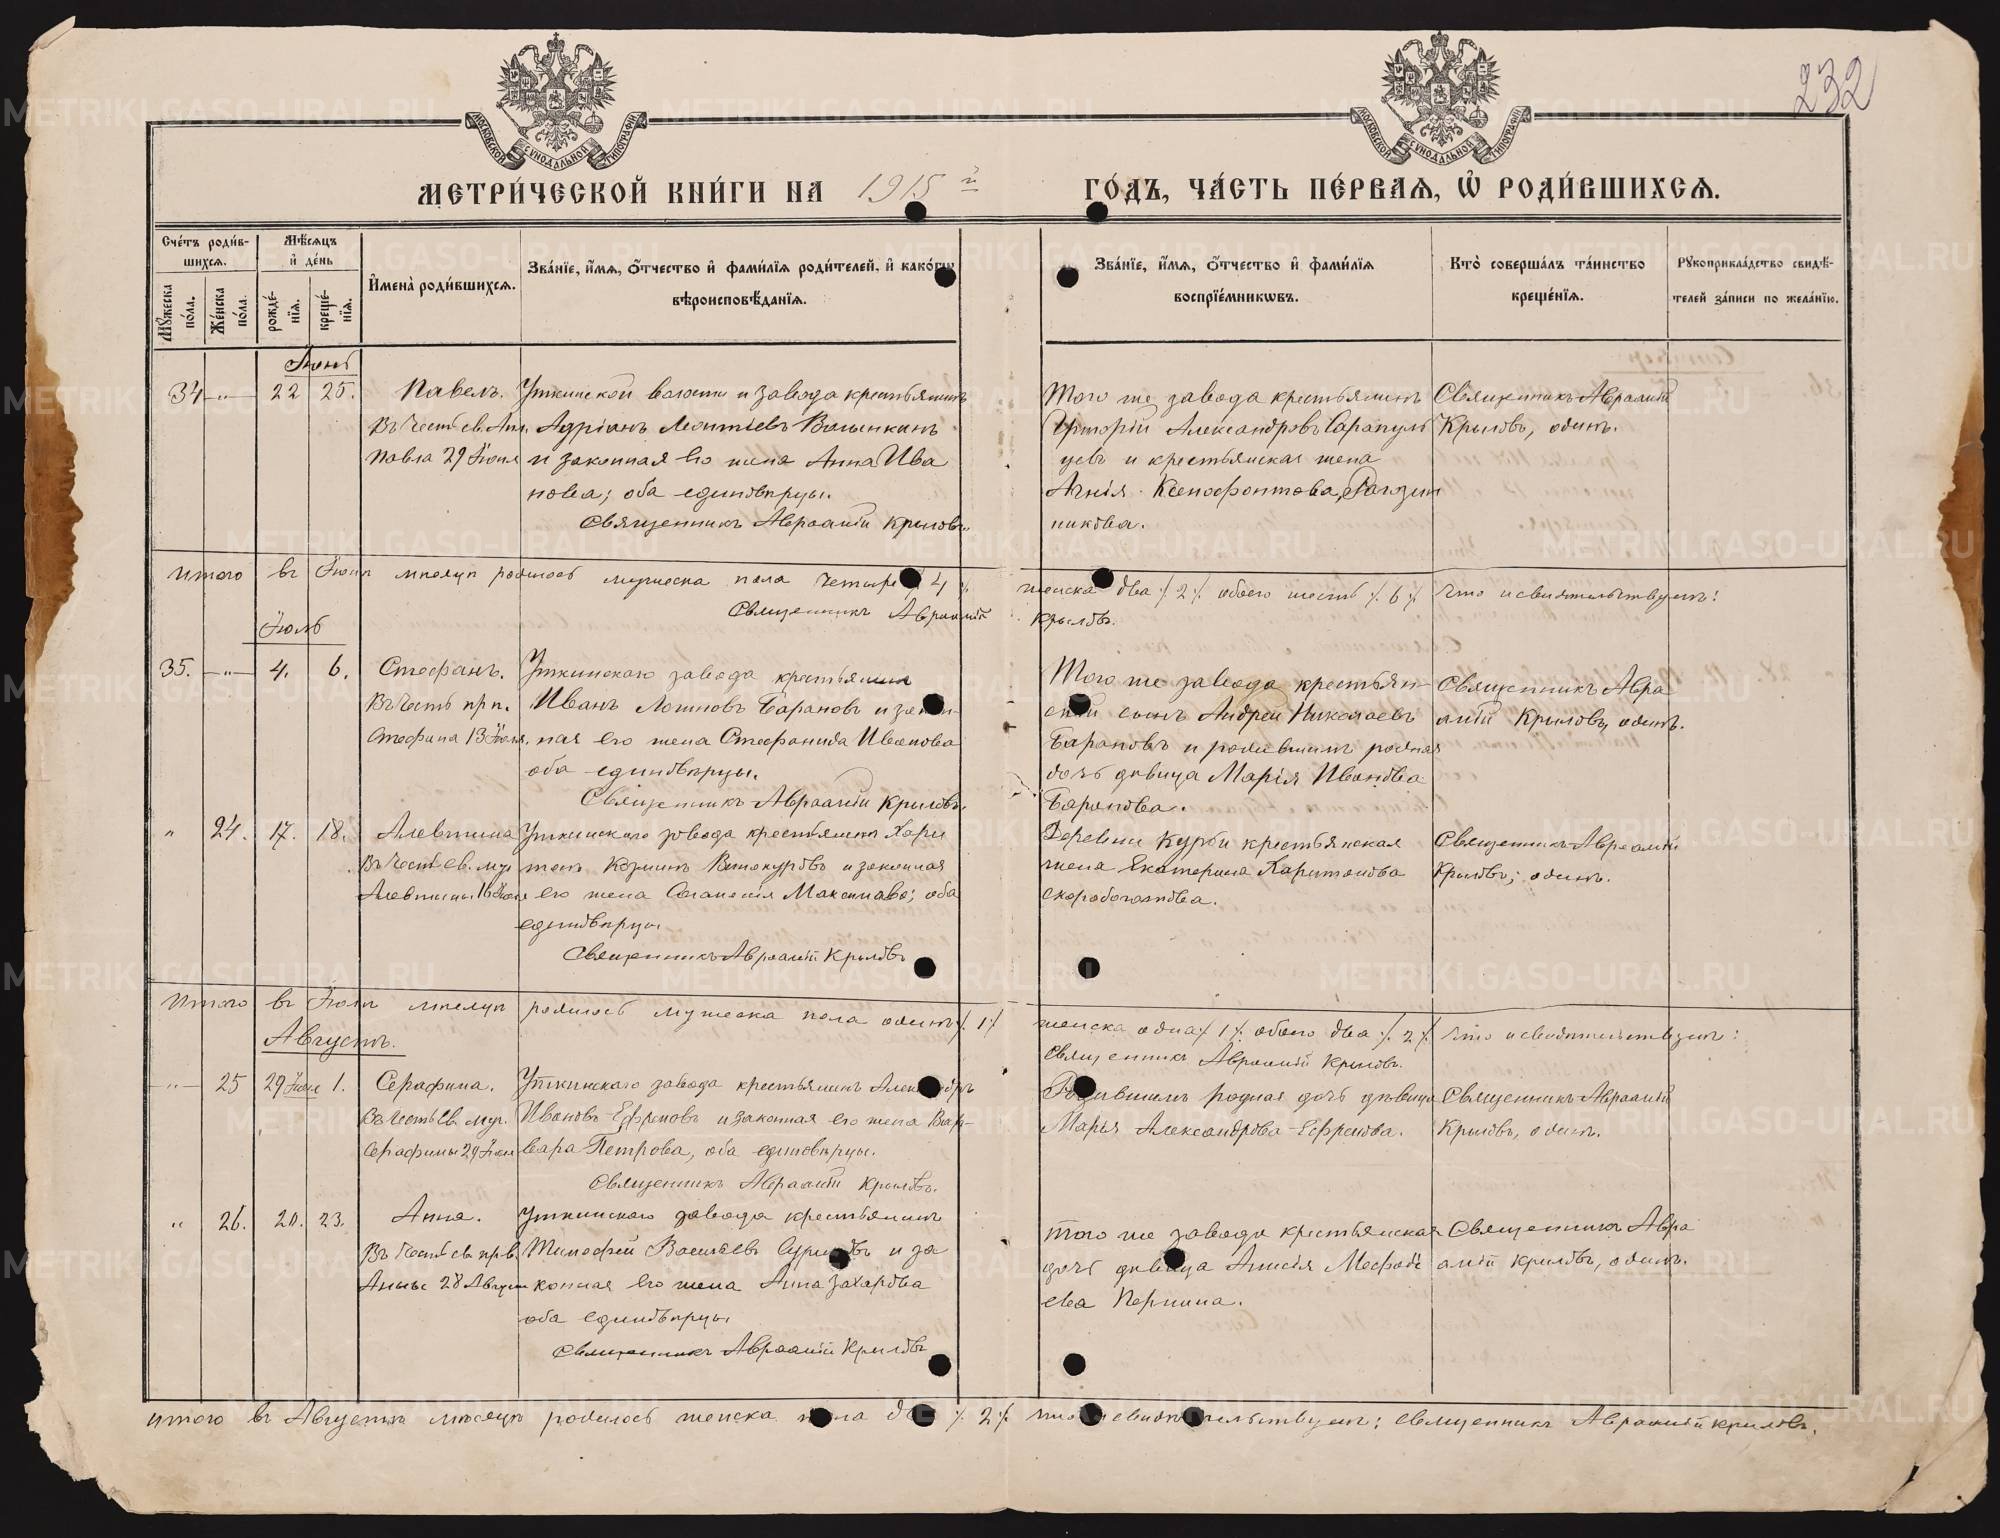 232
МОСКОВСКОЙ СѴНОДАЛЬНОЙ ТИПОГРАФІИ
МОСКОВСКОЙ СѴНОДАЛЬНОЙ ТИПОГРАФІИ
МЕТРИ́ЧЕСКОЙ КНИ́ГИ НА 1915 й ГО́ДЪ, ЧА́СТЬ ПЕ́РВАѦ, Ѡ҆ РОДИ́ВШИХСѦ.
Сче́тъ роди́в-
шихсѧ.
Мꙋ́жеска по́ла.
Же́нска по́ла.
Мѣ́сѧцъ
и҆ де́нь
рожде́-
нїѧ.
креще́-
нїѧ.
И҆мена̀ роди́вшихсѧ.
Зва́нїе, и҆́мѧ, ѻ҆́тчество и҆ фами́лїѧ роди́телей, и҆ како́гѡ
вѣроисповѣ́данїѧ.
Зва́нїе, и҆́мѧ, ѻ҆́тчество и҆ фами́лїѧ
воспрїе́мникѡвъ.
Кто̀ соверша́лъ та́инство
креще́нїѧ.
Рꙋкоприкла́дство свидѣ́-
телей за́писи по жела́нїю.
Іюнь
34 — „ — 22 25.
Павелъ.
Въ честь св. Ап.
Павла 29 Іюня
Уткинской волости и завода крестьянинъ
Адріанъ Леонтьевъ Волынкинъ
и законная его жена Анна Ива
нова; оба единовѣрцы.
Священникъ Авраамій Крыловъ.
Того же завода крестьянинъ
Григорій Александровъ Сарапуль
цевъ и крестьянская жена
Агнія Ксенофонтова Рагозин
никова.
Священникъ Авраамій
Крыловъ, одинъ.
Итого въ Іюнѣ мѣсяцѣ родилось мужеска пола четыре ٪ 4 ٪ женска два ٪ 2 ٪ обоего шесть ٪ 6 ٪ что и свидѣтельствуемъ:
Священникъ Авраамій Крыловъ.
Іюль
35. — „ — 4. 6.
Стефанъ.
Въ честь прп.
Стефана 13 Іюля.
Уткинскаго завода крестьянинъ
Иванъ Логиновъ Барановъ и закон-
ная его жена Стефанида Иванова
оба единовѣрцы.
Священникъ Авраамій Крыловъ.
Того же завода крестьян-
скій сынъ Андрей Николаевъ
Барановъ и родившимъ родная
дочь дѣвица Марія Иванова
Баранова.
Священникъ Авра
амій Крыловъ, одинъ.
„ 24. 17. 18.
Алевтина
Въ честь св. муч.
Алевтины 16 Іюля
Уткинскаго завода крестьянинъ Хари
тонъ Козминъ Винокуровъ и законная
его жена Максимова; оба
единовѣрцы.
Священникъ Авраамій Крыловъ
Деревни Курьи крестьянская
жена Екатерина Харитонова
Скоробогатова.
Священникъ Авраамій
Крыловъ; одинъ.
Итого въ Іюлѣ мѣсяцѣ родилось мужеска пола одинъ ٪ 1 ٪ женска одна ٪ 1 ٪ обоего два ٪ 2 ٪ что и свидѣтельствуемъ:
Священникъ Авраамій Крыловъ.
Августъ.
— „ — 25 29 Іюля 1.
Серафима.
Въ честь св. муч.
Серафимы 29 Іюл
Уткинскаго завода крестьянинъ Александръ
Ивановъ Ефремовъ и законная его жена Вар-
вара Петрова, оба единовѣрцы.
Священникъ Авраамій Крыловъ.
Родившимъ родная дочь дѣвица
Марья Александрова Ефремова.
Священникъ Авраамій
Крыловъ, одинъ.
„ 26. 20. 23.
Анна.
Въ честь св. прв.
Анны 28 Август
Уткинскаго завода крестьянинъ
Тимофей Васильевъ и за
конная его жена Анна Захарова
оба единовѣрцы
Священникъ Авраамій Крыловъ
Того же завода крестьянская
дочь дѣвица Анисія Мефоді
ева Пернина.
Священникъ Авра
амій Крыловъ, одинъ.
итого въ Августѣ мѣсяцѣ родилось женска пола два ٪ 2 ٪ что и свидѣтельствуемъ: священникъ Авраамій Крыловъ.
METRIKI.GASO-URAL.RU